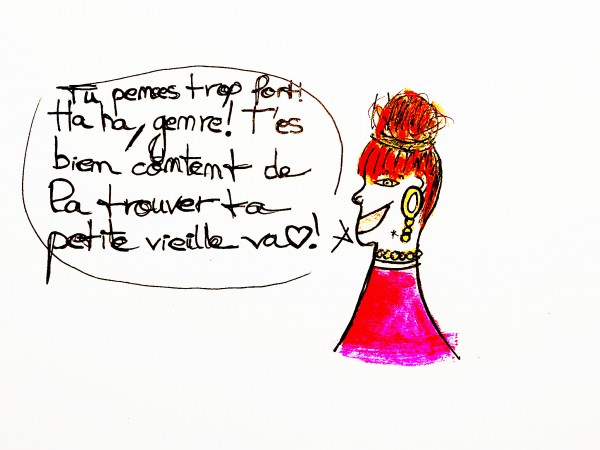 Tu penses trop fort!
Ha ha, genre! T'es
bien content de
la trouver ta
petite vieille va♡!